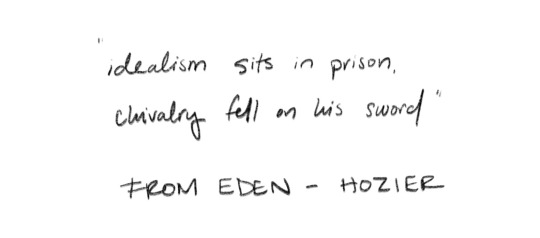 "idealism sits in prison,
chivalry fell on his sword"
FROM EDEN - HOZIER